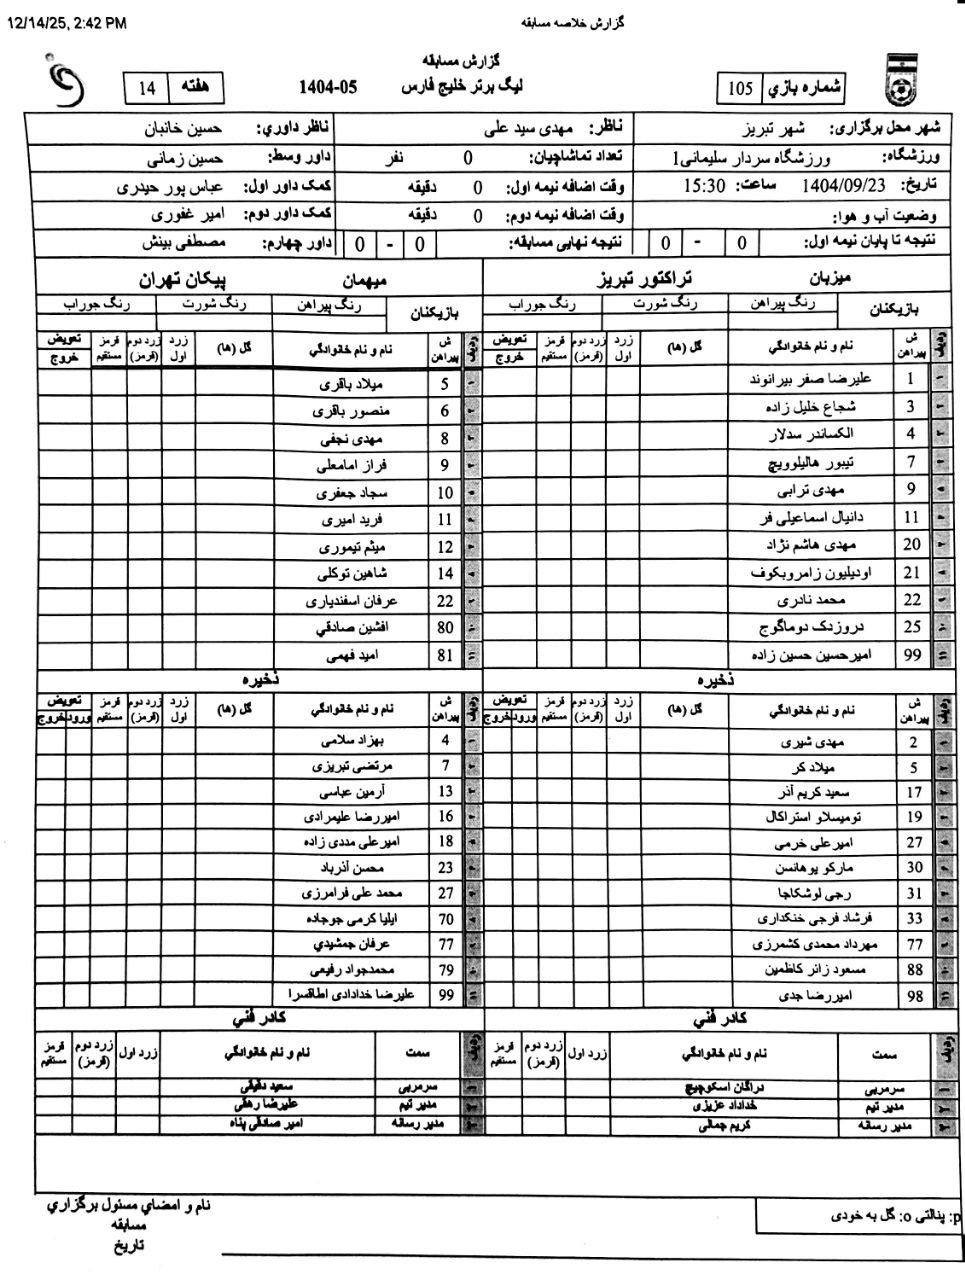 12/14/25, 2:42 PM
گزارش خلاصه مسابقه
گزارش مسابقه
لیگ برتر خلیج فارس 1404-05
شماره بازي 105
هفته 14
شهر محل برگزاری: شهر تبریز
ناظر: مهدی سید علی
ناظر داوري: حسین خانبان
ورزشگاه: ورزشگاه سردار سلیمانی1
تعداد تماشاچیان: 0 نفر
داور وسط: حسین زمانی
تاریخ: 1404/09/23 ساعت: 15:30
وقت اضافه نیمه اول: 0 دقیقه
کمک داور اول: عباس پور حیدری
وضعیت آب و هوا:
وقت اضافه نیمه دوم: 0 دقیقه
کمک داور دوم: امیر غفوری
نتیجه تا پایان نیمه اول: 0 - 0
نتیجه نهایی مسابقه: 0 - 0
داور چهارم: مصطفی بینش
میزبان تراکتور تبریز
بازیکنان رنگ پیراهن رنگ شورت رنگ جوراب
ردیف ش پیراهن نام و نام خانوادگي گل (ها) زرد اول زرد دوم (قرمز) قرمز مستقیم تعویض خروج
۱ 1 علیرضا صفر بیرانوند
۲ 3 شجاع خلیل زاده
۳ 4 الکساندر سدلار
۴ 7 تیبور هالیلوویچ
۵ 9 مهدی ترابی
۶ 11 دانیال اسماعیلی فر
۷ 20 مهدی هاشم نژاد
۸ 21 اودیلیون زامروبکوف
۹ 22 محمد نادری
۱۰ 25 دروزدک دوماگوج
۱۱ 99 امیرحسین حسین زاده
ذخیره
ردیف ش پیراهن نام و نام خانوادگي گل (ها) زرد اول زرد دوم (قرمز) قرمز مستقیم تعویض ورود خروج
۱ 2 مهدی شیری
۲ 5 میلاد کر
۳ 17 سعید کریم آذر
۴ 19 تومیسلاو استراکال
۵ 27 امیرعلی خرمی
۶ 30 مارکو یوهانسن
۷ 31 رجی لوشکاجا
۸ 33 فرشاد فرجی خنکداری
۹ 77 مهرداد محمدی کشمرزی
۱۰ 88 مسعود زائر کاظمین
۱۱ 98 امیررضا جدی
کادر فني
ردیف سمت نام و نام خانوادگي زرد اول زرد دوم (قرمز) قرمز مستقیم
۱ سرمربی دراگان اسکوچیچ
۲ مدیر تیم خداداد عزیزی
۳ مدیر رسانه کریم جمالی
میهمان پیکان تهران
بازیکنان رنگ پیراهن رنگ شورت رنگ جوراب
ردیف ش پیراهن نام و نام خانوادگي گل (ها) زرد اول زرد دوم (قرمز) قرمز مستقیم تعویض خروج
۱ 5 میلاد باقری
۲ 6 منصور باقری
۳ 8 مهدی نجفی
۴ 9 فراز امامعلی
۵ 10 سجاد جعفری
۶ 11 فرید امیری
۷ 12 میثم تیموری
۸ 14 شاهین توکلی
۹ 22 عرفان اسفندیاری
۱۰ 80 افشین صادقي
۱۱ 81 امید فهمی
ذخیره
ردیف ش پیراهن نام و نام خانوادگي گل (ها) زرد اول زرد دوم (قرمز) قرمز مستقیم تعویض ورود خروج
۱ 4 بهزاد سلامی
۲ 7 مرتضی تبریزی
۳ 13 آرمین عباسی
۴ 16 امیررضا علیمرادی
۵ 18 امیرعلی مددی زاده
۶ 23 محسن آذرباد
۷ 27 محمد علی فرامرزی
۸ 70 ایلیا کرمی جوجاده
۹ 77 عرفان جمشیدي
۱۰ 79 محمدجواد رفیعی
۱۱ 99 علیرضا خدادادی اطاقسرا
کادر فني
ردیف سمت نام و نام خانوادگي زرد اول زرد دوم (قرمز) قرمز مستقیم
۱ سرمربی سعید دقیقی
۲ مدیر تیم علیرضا رهقی
۳ مدیر رسانه امیر صادقی پناه
p: پنالتی o: گل به خودی
نام و امضاي مسئول برگزاري
مسابقه
تاریخ